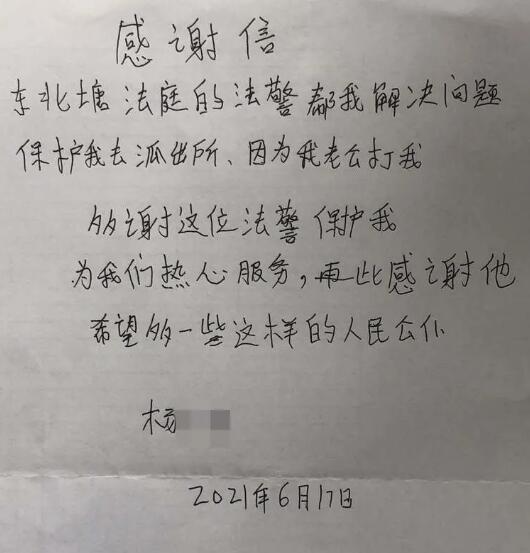 感谢信
东北塘法庭的法警帮我解决问题
保护我去派出所、因为我老公打我
多谢这位法警保护我
为我们热心服务,再此感谢他
希望多一些这样的人民公仆
杨
2021年6月17日